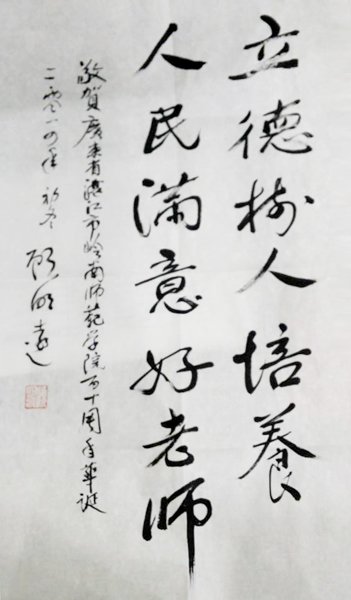 立德树人培养
人民满意好老师
敬贺广东省湛江市岭南师范学院百十周年华诞
二零一四年初冬 顾明远